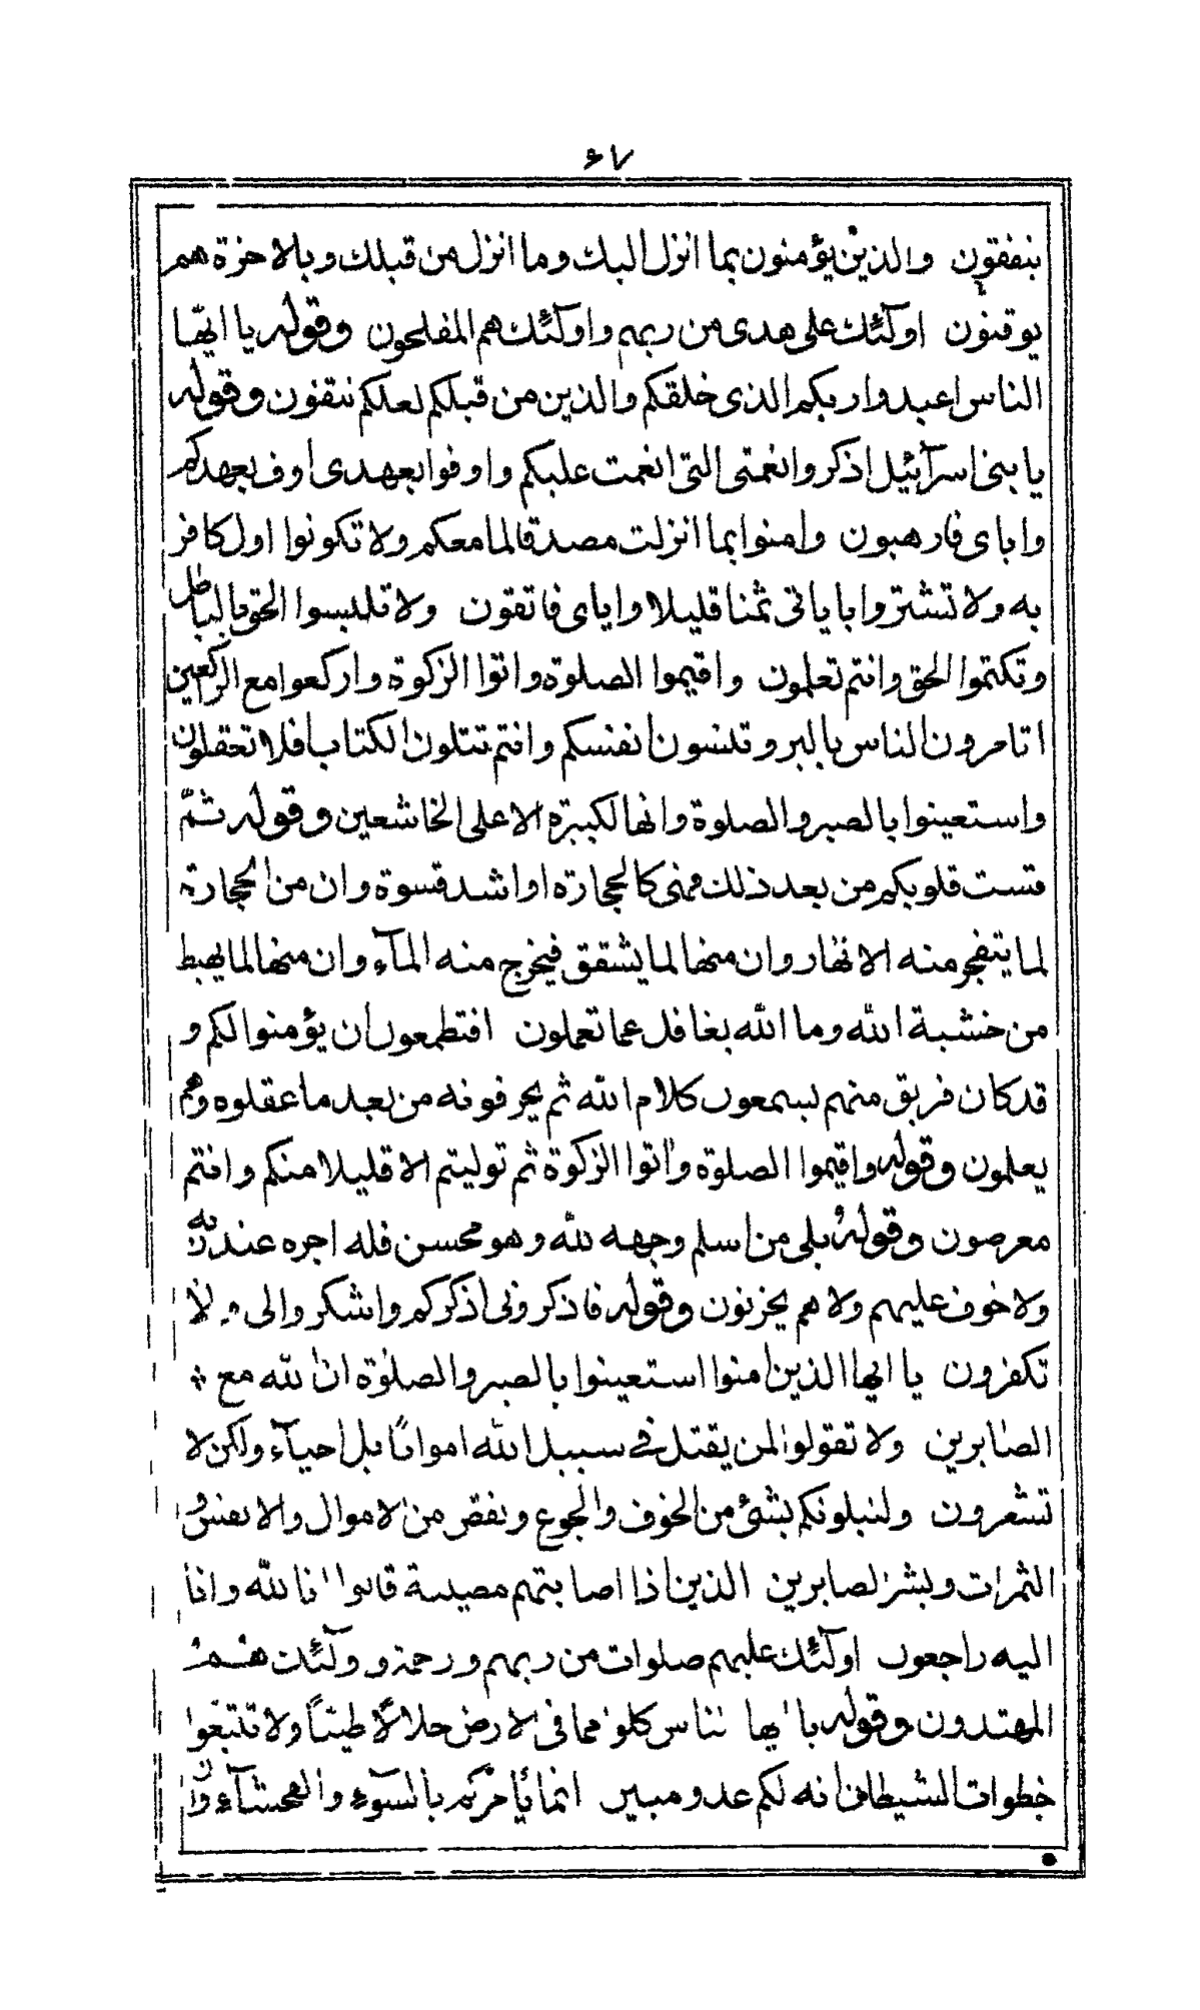 ۶۷
ينفقون والذين يؤمنون بما انزل اليك وما انزل من قبلك وبالاخرة هم
يوقنون اولئك على هدى من ربهم واولئك هم المفلحون وقوله يا ايها
الناس اعبدوا ربكم الذى خلقكم والذين من قبلكم لعلكم تتقون وقوله
يا بنى اسرآئيل اذكروا نعمتى التى انعمت عليكم واوفوا بعهدى اوف بعهدكم
واياى فارهبون وامنوا بما انزلت مصدقا لما معكم ولا تكونوا اول كافر
به ولا تشتروا باياتى ثمنا قليلا واياى فاتقون ولا تلبسوا الحق بالباطل
وتكتموا الحق وانتم تعلمون واقيموا الصلوة واتوا الزكوة واركعوا مع الركعين
اتامرون الناس بالبر وتنسون انفسكم وانتم تتلون الكتاب افلا تعقلون
واستعينوا بالصبر والصلوة وانها لكبيرة الا على الخاشعين وقوله ثمّ
قست قلوبكم من بعد ذلك فهى كالحجارة او اشد قسوة وان من الحجارة
لما يتفجر منه الانهار وان منها لما يشقق فيخرج منه المآء وان منها لما يهبط
من خشية الله وما الله بغافل عما تعملون افتطمعون ان يؤمنوا لكم و
قد كان فريق منهم يسمعون كلام الله ثم يحرفونه من بعد ما عقلوه وهم
يعلمون وقوله واقيموا الصلوة واتوا الزكوة ثم توليتم الا قليلا منكم وانتم
معرضون وقوله بلى من اسلم وجهه لله وهو محسن فله اجره عند ربه
ولا خوف عليهم ولا هم يحزنون وقوله فاذكرونى اذكركم واشكروا لى ولا
تكفرون يا ايها الذين امنوا استعينوا بالصبر والصلوة ان الله مع
الصابرين ولا تقولوا لمن يقتل فى سبيل الله امواتاً بل احيآء ولكن لا
تشعرون ولنبلونكم بشئ من الخوف والجوع ونقص من الاموال والانفس و
الثمرات وبشر الصابرين الذين اذا اصابتهم مصيبة قالوا انا لله وانا
اليه راجعون اولئك عليهم صلوات من ربهم ورحمة واولئك هم
المهتدون وقوله يا ايها الناس كلوا مما فى الارض حلالاً طيباً ولا تتبعوا
خطوات الشيطان انه لكم عدو مبين انما يأمركم بالسوء والفحشآء وان